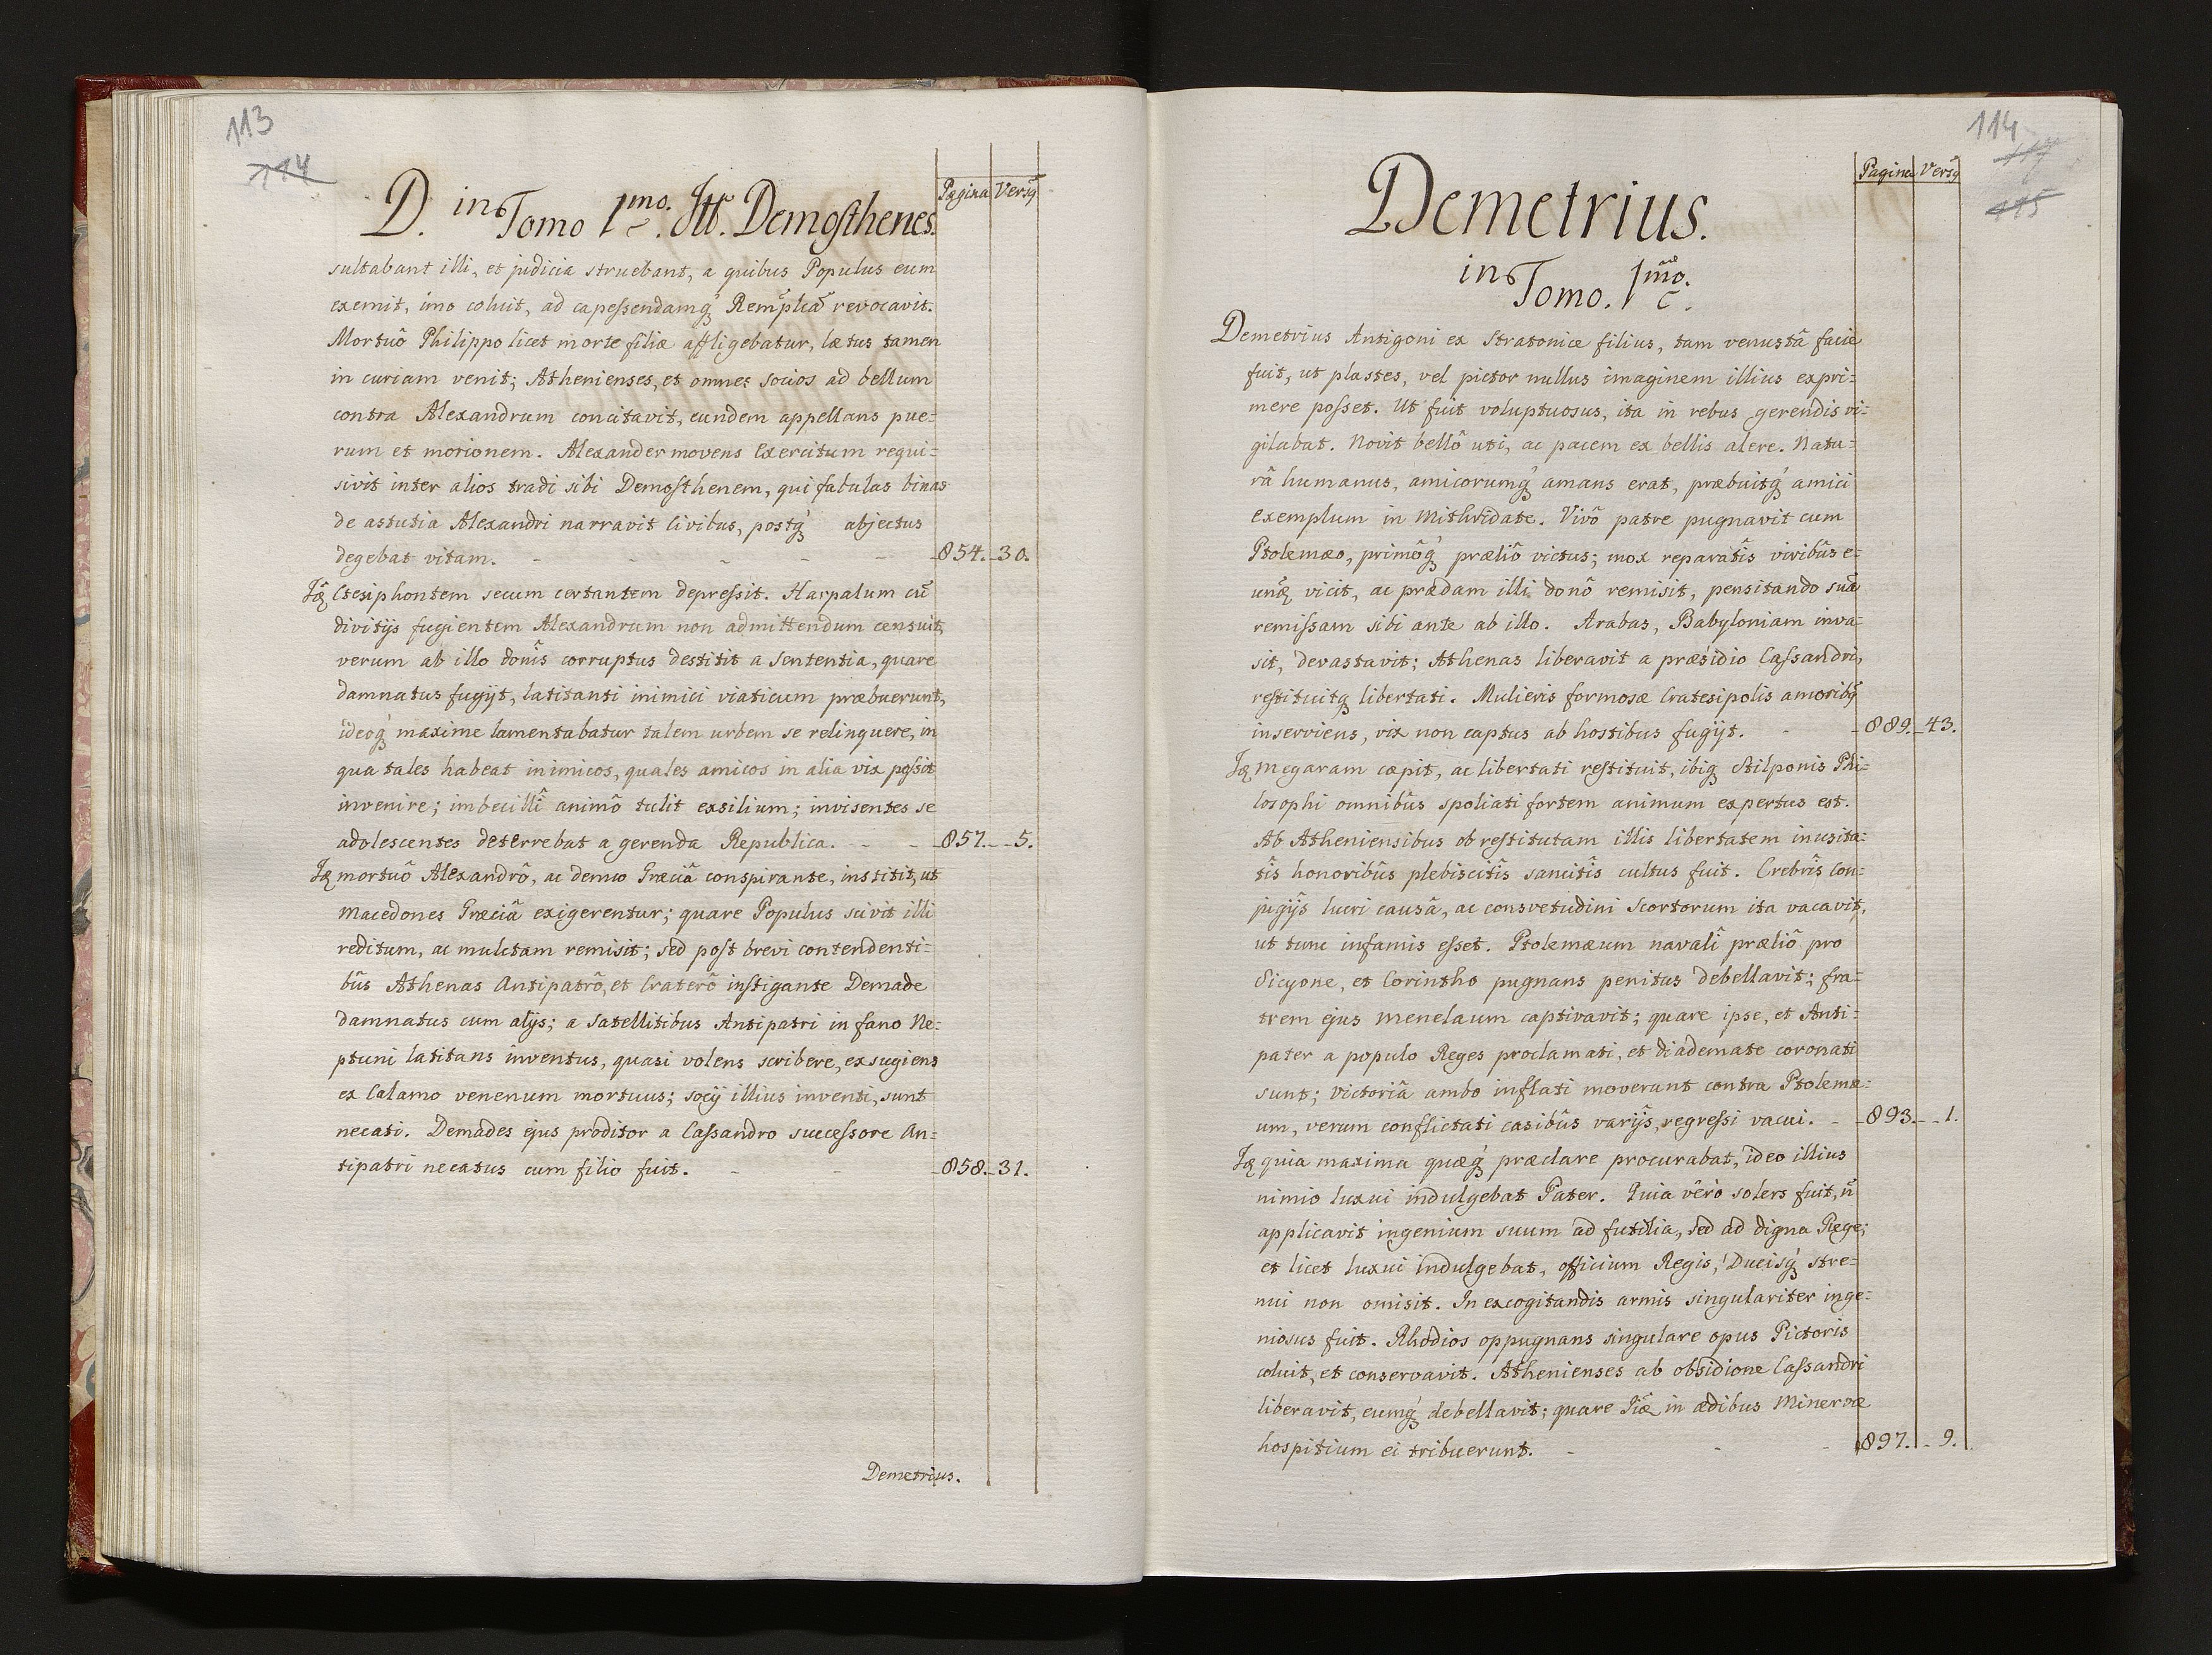 113
114
D. in Tomo 1mo. Itt. Demosthenes.
Pagina Versq
sultabant illi, et judicia struebant, a quibus Populus eum
exemit, imo coluit, ad capessendamq́ Remplicā revocavit.
Mortuô Philippo licet morte filiæ affligebatur, lætus tamen
in curiam venit; Athenienses, et omnes socios ad bellum
contra Alexandrum concitavit, eundem appellans pue=
rum et morionem. Alexander movens Exercitum requi=
sivit inter alios tradi sibi Demosthenem, qui fabulas binas
de astutia Alexandri narravit Civibus, postq́ abjectus
degebat vitam. - - - - - 854. 30.
Itę Ctesiphontem secum certantem depressit. Harpalum cū
divitijs fugientem Alexandrum non admittendum censuit,
verum ab illo donîs corruptus destitit a sententia, quare
damnatus fugijt, latitanti inimici viaticum præbuerunt,
ideoq́ maxime lamentabatur talem urbem se relinquere, in
qua tales habeat inimicos, quales amicos in alia vix possit
invenire; imbecillî animô tulit exsilium; invisentes se
adolescentes deterrebat a gerenda Republica. - - 857. 5.
Itę mortuô Alexandrô, ac denuo Græciâ conspirante, institit, ut
Macedones Græciâ exigerentur; quare Populus scivit illi
reditum, ac mulctam remisit; sed post brevi contendenti=
bûs Athenas Antipatrô, et Craterô instigante Demade
damnatus cum alijs; a satellitibus Antipatri in fano Ne=
ptuni latitans inventus, quasi volens scribere, exsugiens
ex Calamo venenum mortuus; socij illius inventi, sunt
necati. Demades ejus proditor a Cassandro successore An=
tipatri necatus cum filio fuit. - - 858. 31.
Demetrius.
114
117
115
Pagina Versq
Demetrius.
in Tomo. 1mo.
Demetrius Antigoni ex Stratonice filius, tam venustâ facie
fuit, ut plastes, vel pictor nullus imaginem illius expri=
mere posset. Ut fuit voluptuosus, ita in rebus gerendis vi=
gilabat. Novit bellô uti, ac pacem ex bellis alere. Natu=
râ humanus, amicorumq́ amans erat, præbuitq́ amici
exemplum in Mithridate. Vivô patre pugnavit cum
Ptolemæo, primôq́ præliô victus; mox reparatîs viribûs e=
undę vicit, ac prædam illi donô remisit, pensitando suā
remissam sibi ante ab illo. Arabas, Babyloniam inva=
sit, devastavit; Athenas liberavit a præsidio Cassandri,
restituitq libertati. Mulieris formosæ Cratesipolis amoribq
inserviens, vix non captus ab hostibus fugijt. - 889. 43.
Itę Megaram cæpit, ac libertati restituit, ibiq Stilponis Phi=
losophi omnibûs spoliati fortem animum expertus est.
Ab Atheniensibus ob restitutam illis libertatem inusita=
tîs honoribûs plebiscitîs sancitîs cultus fuit. Crebrîs Con=
jugijs lucri causâ, ac consvetudini Scortorum ita vacavit,
ut tunc infamis esset. Ptolemæum navalî præliô pro
Sicyone, et Corintho pugnans penitus debellavit; fra=
trem ejus Menelaum captivavit; quare ipse, et Anti=
pater a populo Reges proclamati, et diademate coronati
sunt; victoriâ ambo inflati moverunt contra Ptolemæ=
um, verum conflictati casibûs varijs, regressi vacui. - 893. 1.
Itę quia maxima quæq́ præclare procurabat, ideo illius
nimio luxui indulgebat Pater. Quia verò solers fuit, n̄
applicavit ingenium suum ad futilia, sed ad digna Rege;
et licet luxui indulgebat, officium Regis, Ducisq́ stre=
nui non omisit. In excogitandis armis singulariter inge=
niosus fuit. Rhodios oppugnans singulare opus Pictoris
coluit, et conservavit. Athenienses ab obsidione Cassandri
liberavit, eumq́ debellavit; quare in ædibus Minervæ
hospitium ei tribuerunt. - - - 897. 9.